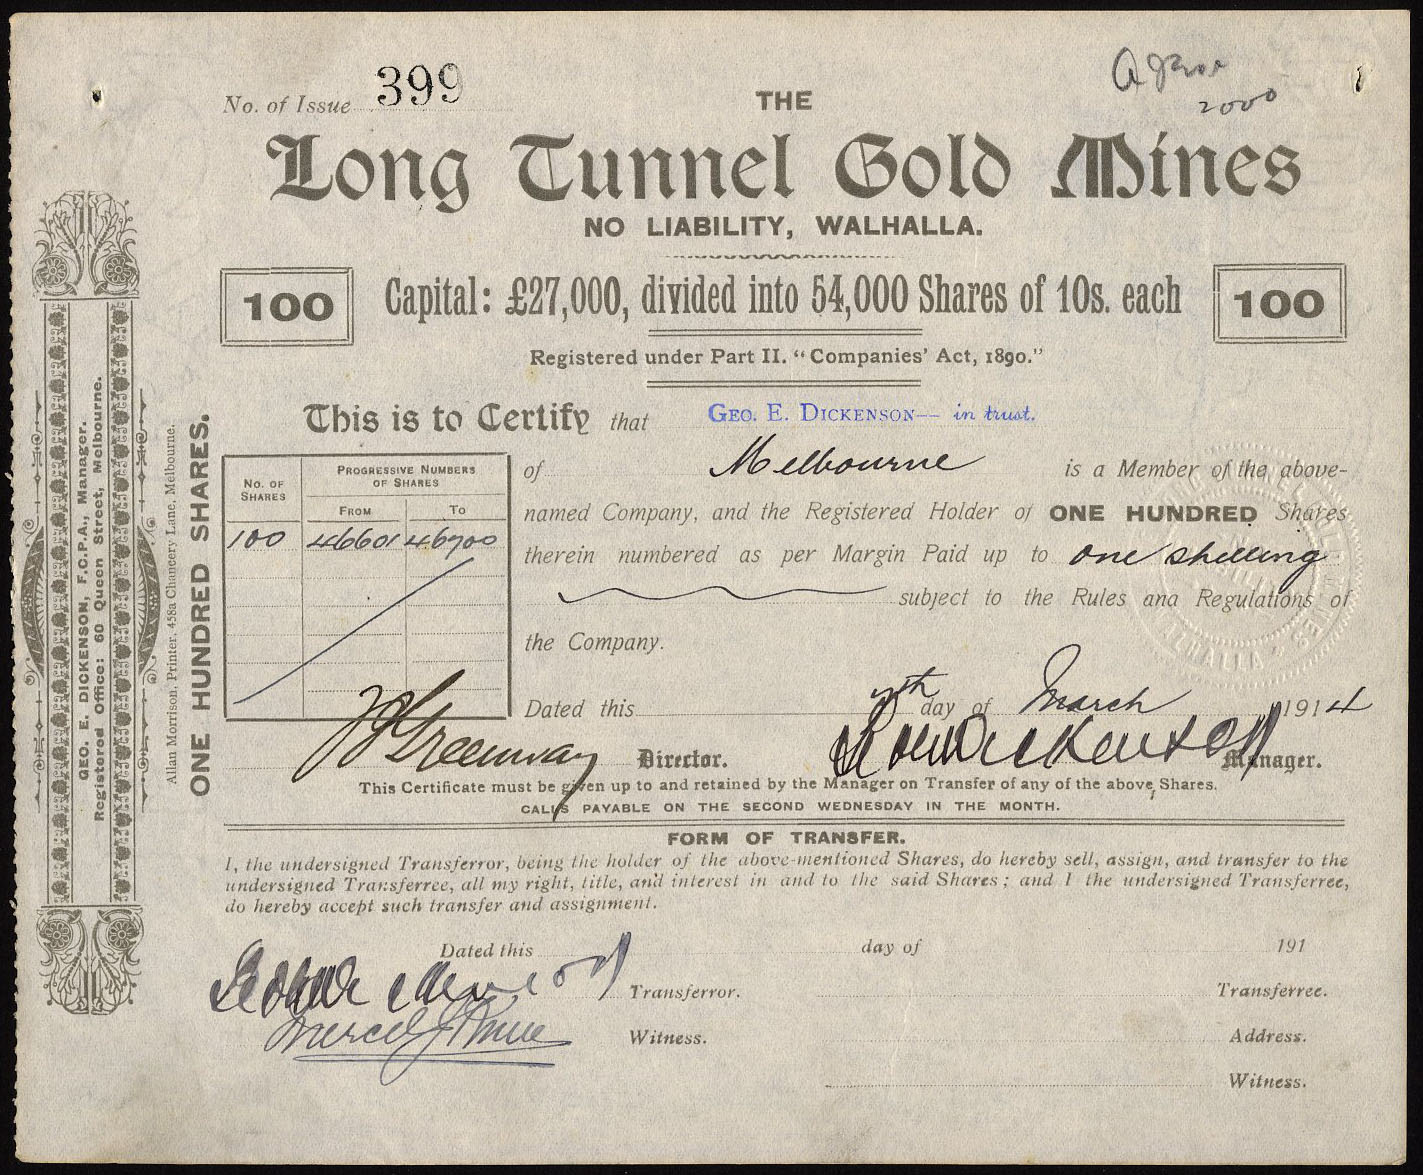 No. of Issue 399
2000
THE
Long Tunnel Gold Mines
NO LIABILITY, WALHALLA.
100
Capital: £27,000, divided into 54,000 Shares of 10s. each
100
Registered under Part II. "Companies' Act, 1890."
This is to Certify that GEO. E. DICKENSON— in trust.
of Melbourne is a Member of the above-
named Company, and the Registered Holder of ONE HUNDRED Shares
therein numbered as per Margin Paid up to one shilling
subject to the Rules and Regulations of
the Company.
No. OF SHARES
PROGRESSIVE NUMBERS OF SHARES
FROM TO
100 46601 46700
Dated this day of March 1914
Greenway Director.
Geo. E. Dickenson Manager.
This Certificate must be given up to and retained by the Manager on Transfer of any of the above Shares.
CALLS PAYABLE ON THE SECOND WEDNESDAY IN THE MONTH.
FORM OF TRANSFER.
I, the undersigned Transferror, being the holder of the above-mentioned Shares, do hereby sell, assign, and transfer to the
undersigned Transferree, all my right, title, and interest in and to the said Shares; and I the undersigned Transferree,
do hereby accept such transfer and assignment.
Dated this day of 191
Transferror. Transferree.
Witness. Address.
Witness.
GEO. E. DICKENSON, F.C.P.A., Manager.
Registered Office: 60 Queen Street, Melbourne.
Allan Morrison, Printer, 458a Chancery Lane, Melbourne.
ONE HUNDRED SHARES.